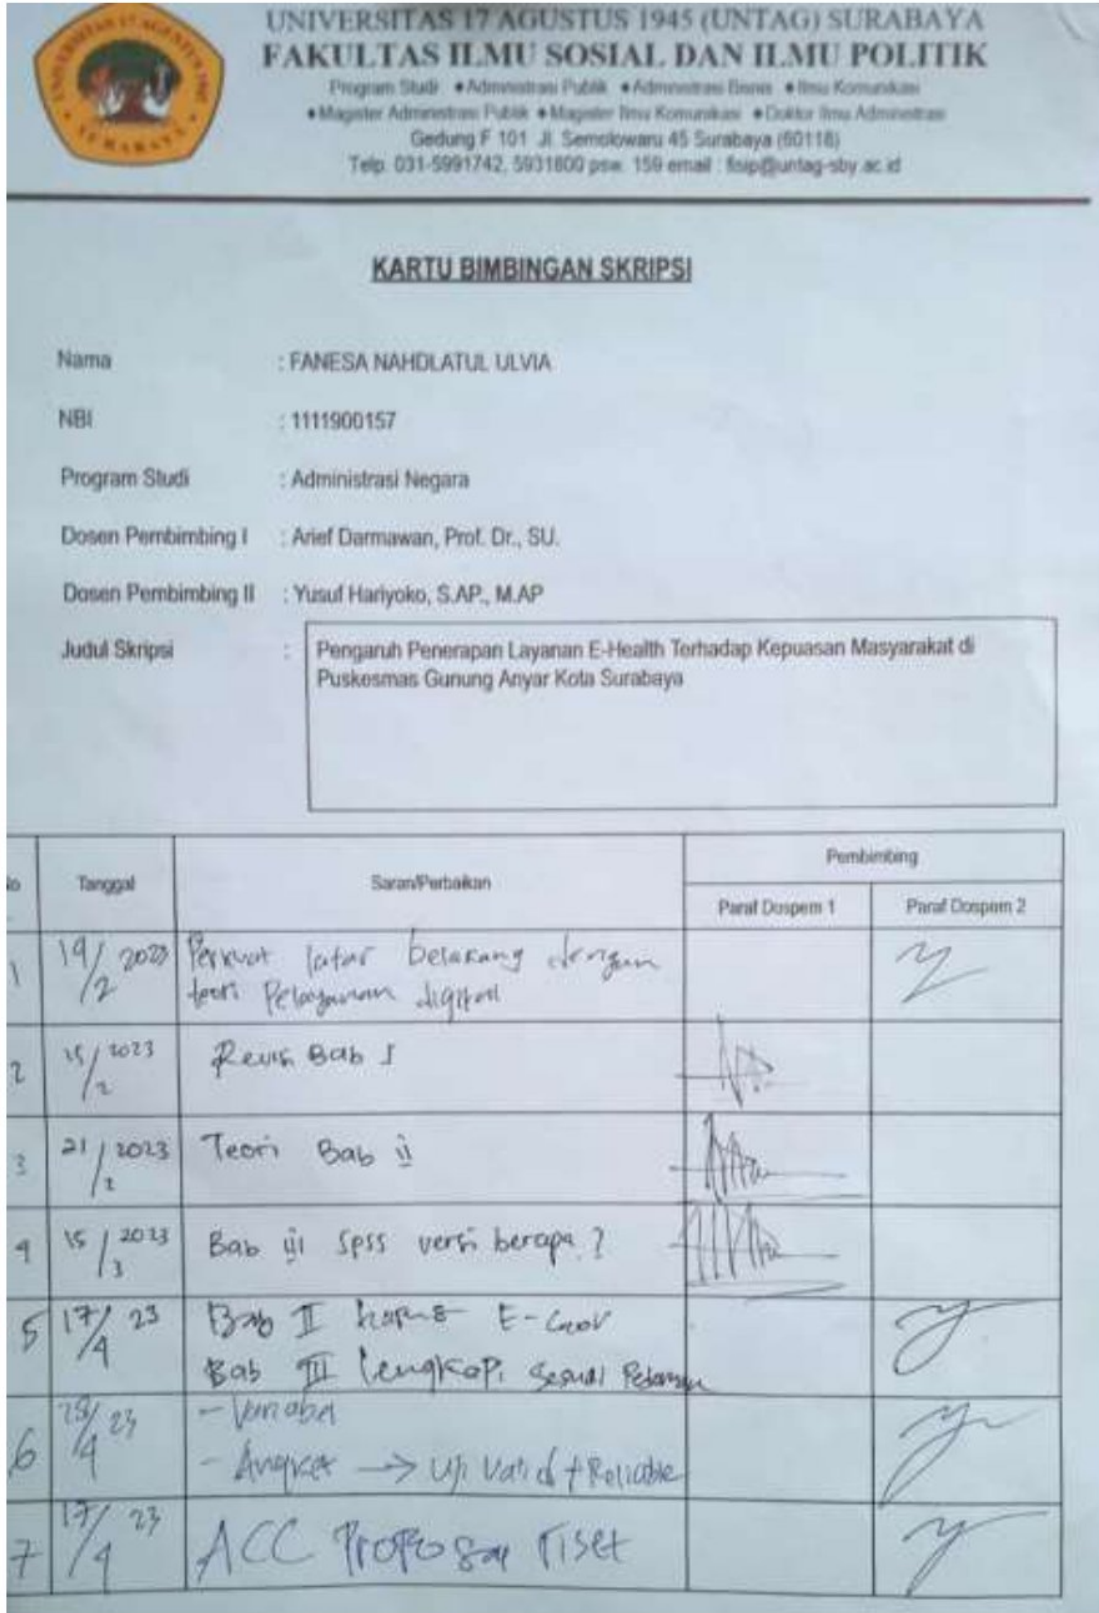 UNIVERSITAS 17 AGUSTUS 1945
SURABAYA
UNIVERSITAS 17 AGUSTUS 1945 (UNTAG) SURABAYA
FAKULTAS ILMU SOSIAL DAN ILMU POLITIK
Program Studi • Administrasi Publik • Administrasi Bisnis • Ilmu Komunikasi
• Magister Administrasi Publik • Magister Ilmu Komunikasi • Doktor Ilmu Administrasi
Gedung F 101 Jl. Semolowaru 45 Surabaya (60118)
Telp. 031-5991742, 5931800 psw. 159 email : fisip@untag-sby.ac.id
KARTU BIMBINGAN SKRIPSI
Nama : FANESA NAHDLATUL ULVIA
NBI : 1111900157
Program Studi : Administrasi Negara
Dosen Pembimbing I : Arief Darmawan, Prof. Dr., SU.
Dosen Pembimbing II : Yusuf Hariyoko, S.AP., M.AP
Judul Skripsi : Pengaruh Penerapan Layanan E-Health Terhadap Kepuasan Masyarakat di
Puskesmas Gunung Anyar Kota Surabaya
Tanggal Saran/Perbaikan Pembimbing
Paraf Dospem 1 Paraf Dospem 2
1 19/2 2023 Perkuat latar belakang dengan
teori Pelayanan digital
2 15/2 2023 Revisi Bab I
3 21/2 2023 Teori Bab ii
4 15/3 2023 Bab iii SPSS versi berapa?
5 17/4 23 Bab II E-Gov
Bab III lengkapi sesuai
6 23 - Variabel
- Angket → Uji Valid + Reliable
7 17/4 23 ACC Proposal riset